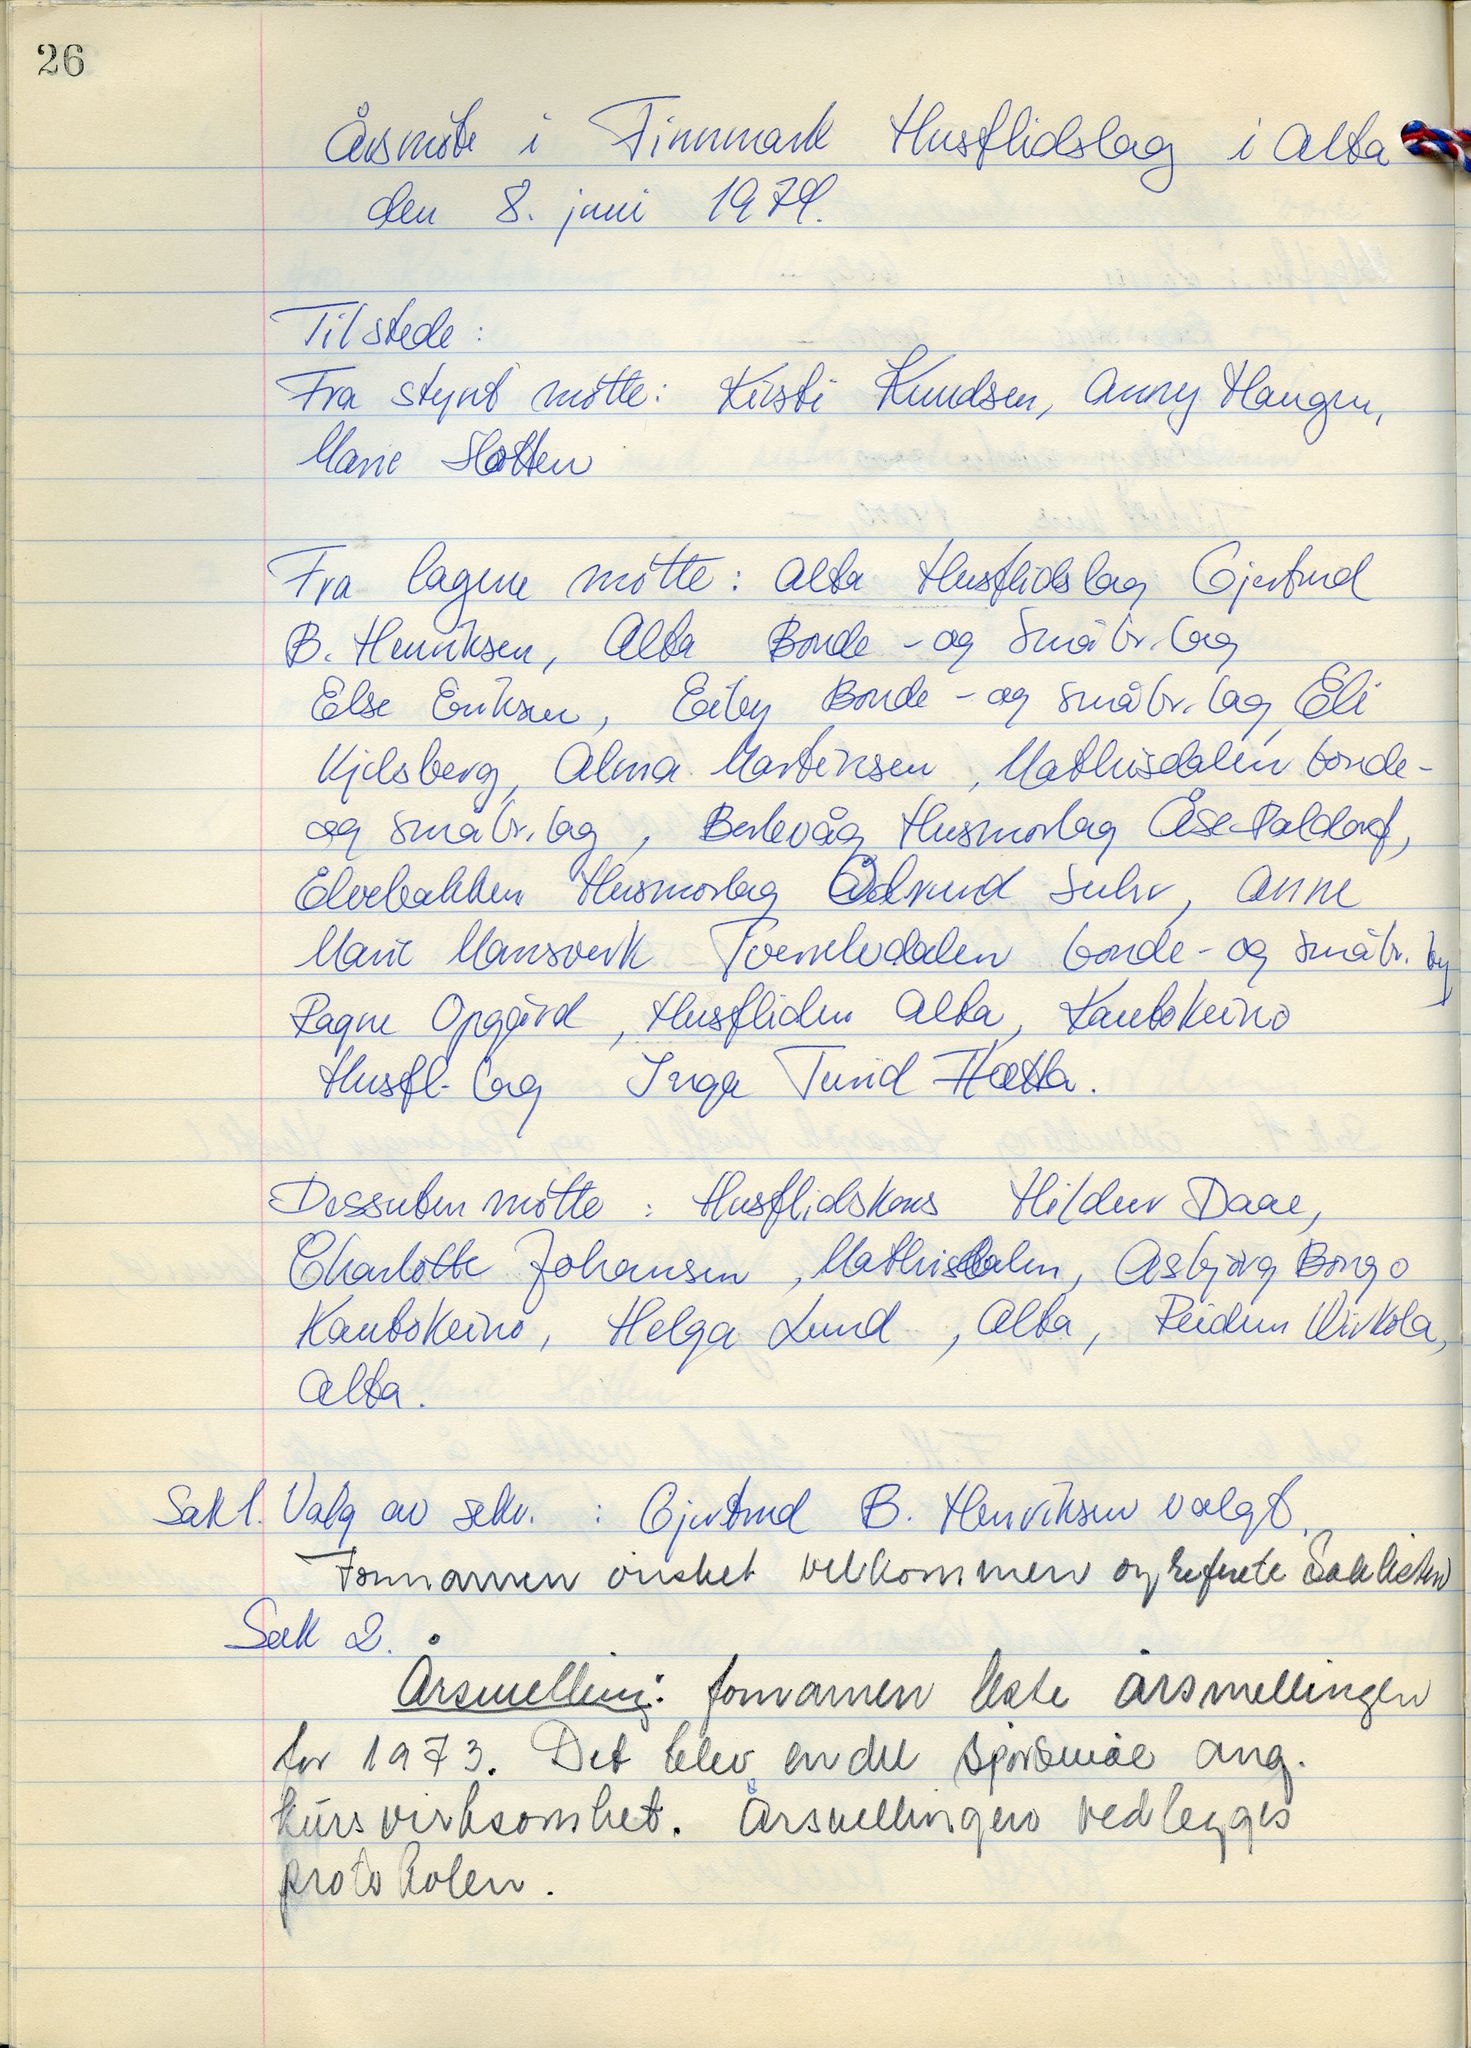 26
Årsmöte i Finnmark Husflidslag i Alta
den 8. juni 1974.
Tilstede:
Fra styret mötte: Kirsti Knudsen, Anny Haugen,
Marie Slotten
Fra lagene mötte: Alta Husflidslag Gjertrud
B. Henriksen, Alta Bonde- og småbr. lag
Else Eriksen, Eiby Bonde- og småbr. lag, Eli
Kjelsberg, Alma Martinsen, Mathisdalen bonde-
og småbr. lag, Berlevåg Husmorlag Åse
Elvebakken Husmorlag Suhr, Anne
Marie Tverrelvdalen bonde- og småbr. lag
Ragne Opgård, Husfliden Alta, Kautokeino
Husfl. lag Inga Turid Hætta.
Dessuten mötte: Husflidskons Hildur Daae,
Charlotte Johansen, Mathisdalen, Asbjørg Bongo
Kautokeino, Helga Lund, Alta, Reidun Wirkola,
Alta.
Sak 1. Valg av sekr. : Gjertrud B. Henriksen valgt.
Formannen önsket velkommen og refererte Saklisten
Sak 2.
Årsmelling: formannen leste årsmellingen
for 1973. Det blev en del spörsmål ang.
kursvirksomhet. Årsmellingen vedlegges
protokolen.